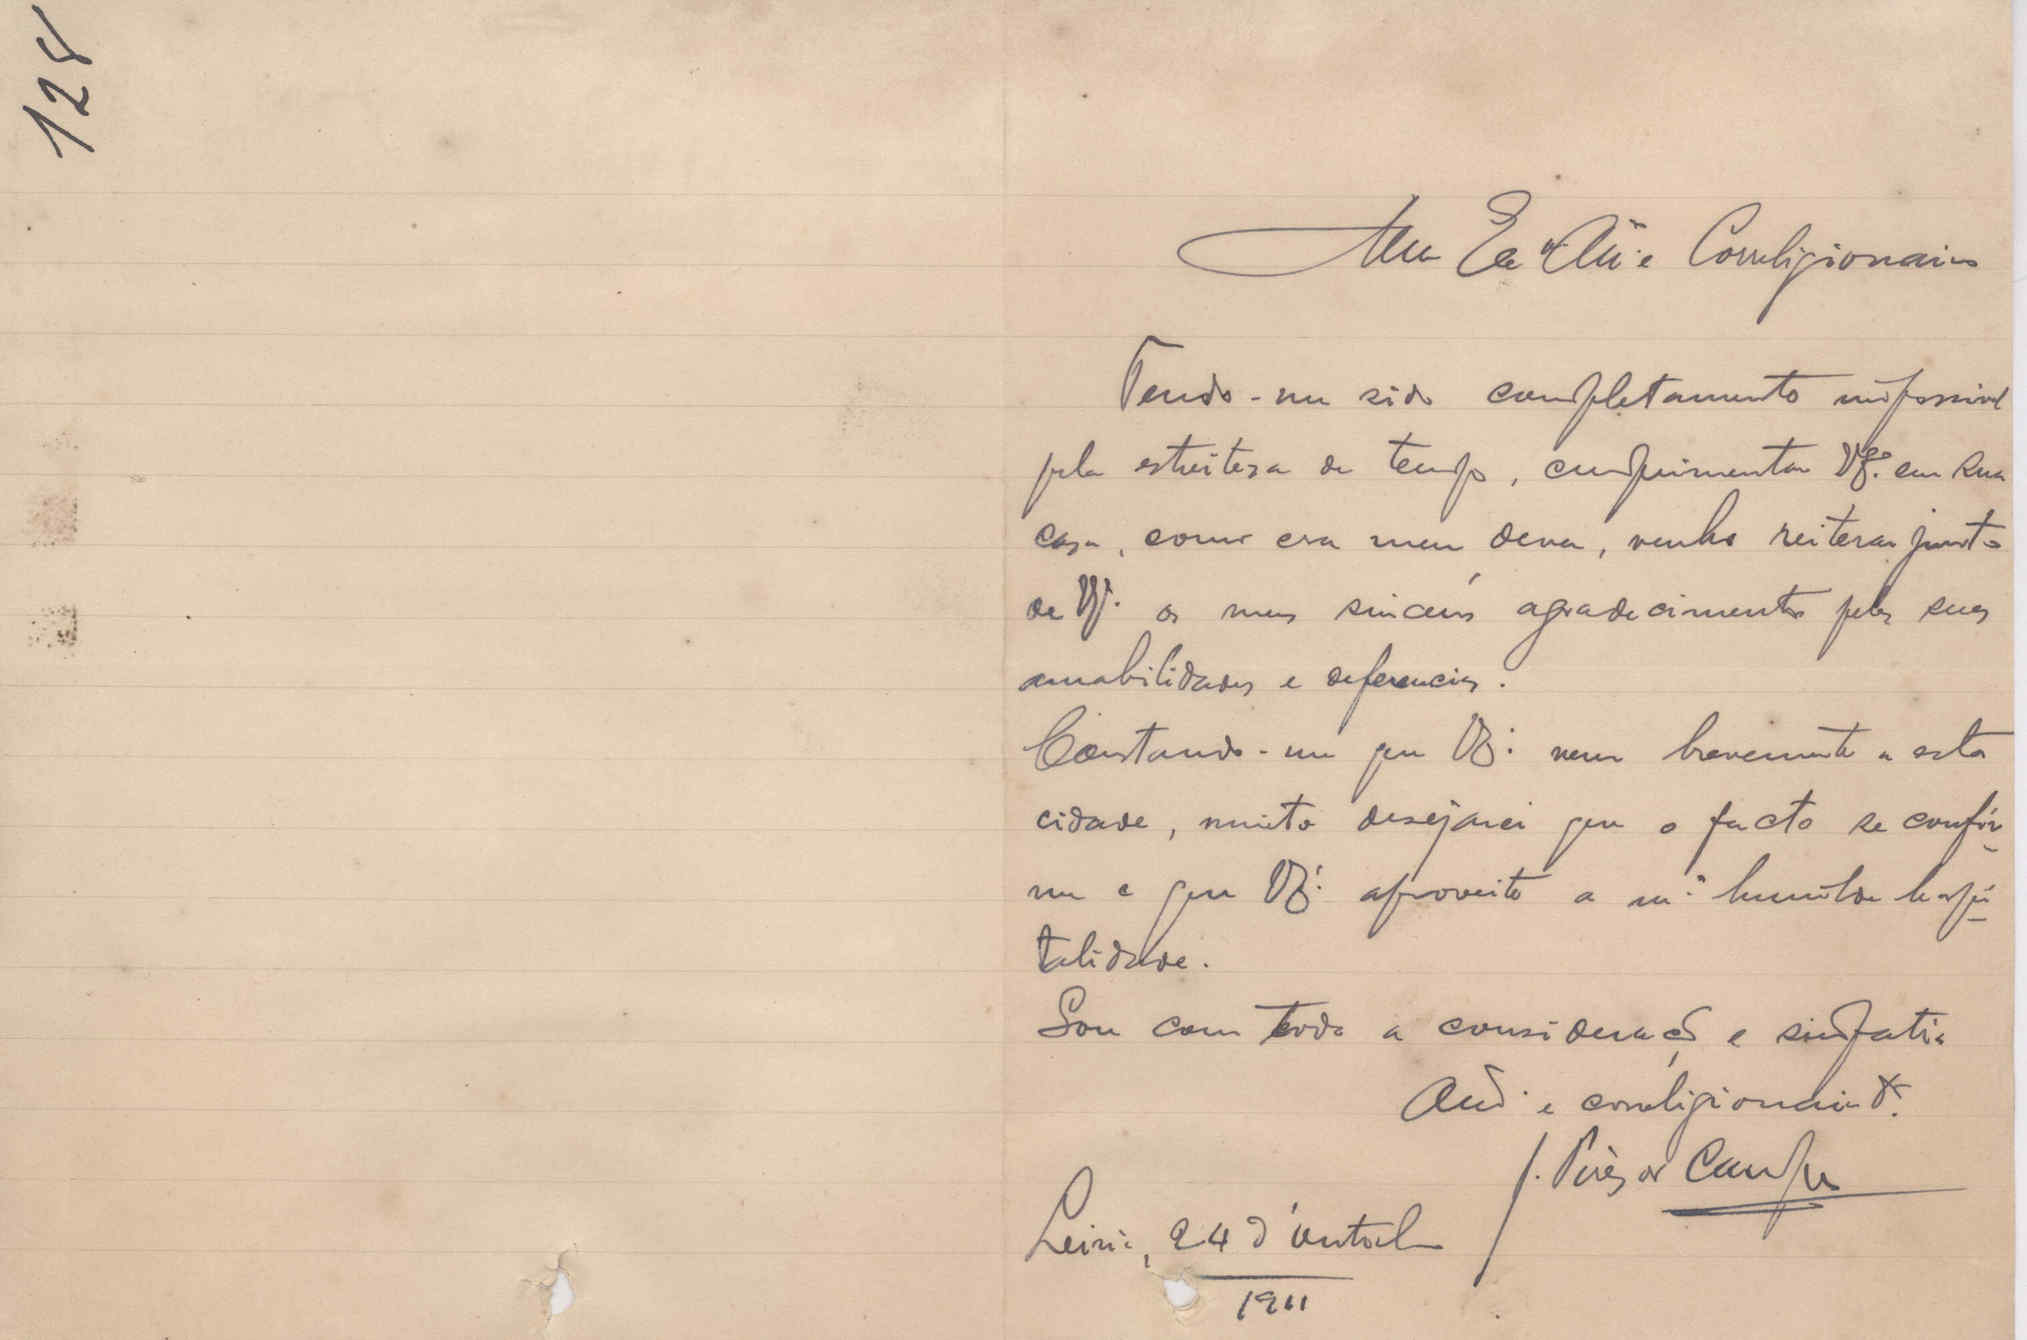 128
Meu Ex.mo Am.º e Correligionario
Tendo-me sido completamente impossivel
pela estreitesa de tempo, cumprimentar V. Ex.ª em sua
casa, como era meu dever, venho reiterar junto
de V. Ex.ª os meus sinceros agradecimentos pelas suas
amabilidades e deferencias.
Constando-me que V. Ex.ª vem brevemente a esta
cidade, muito desejarei que o facto se confir-
me e que V. Ex.ª aproveite a m.ª humilde hospi-
talidade.
Sou com toda a consideração e simpatia
Am.º e correligionario
J. Pires de Campos
Leiria, 24 d'outubro
1911